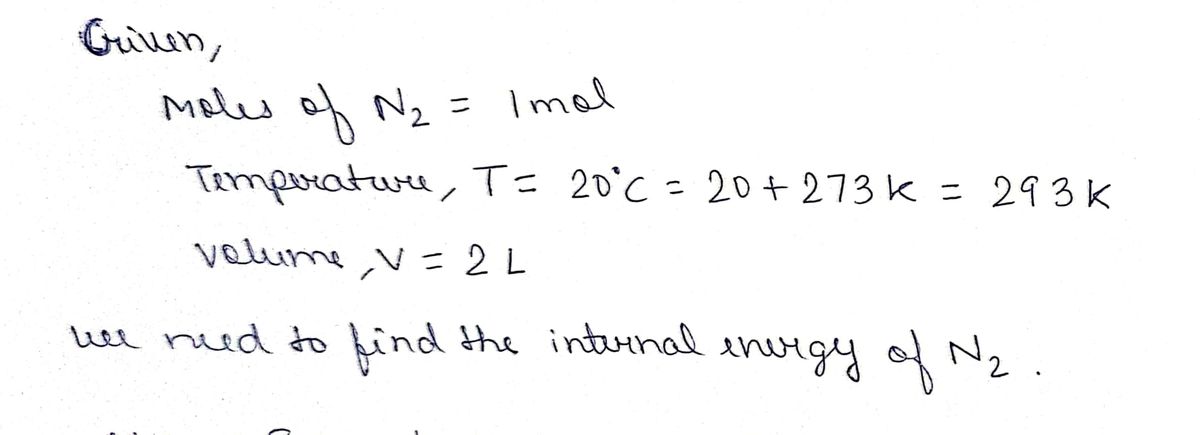 Given,
Moles of N₂ = 1 mol
Temperature, T = 20°C = 20 + 273 K = 293 K
Volume, V = 2 L
we need to find the internal energy of N₂.